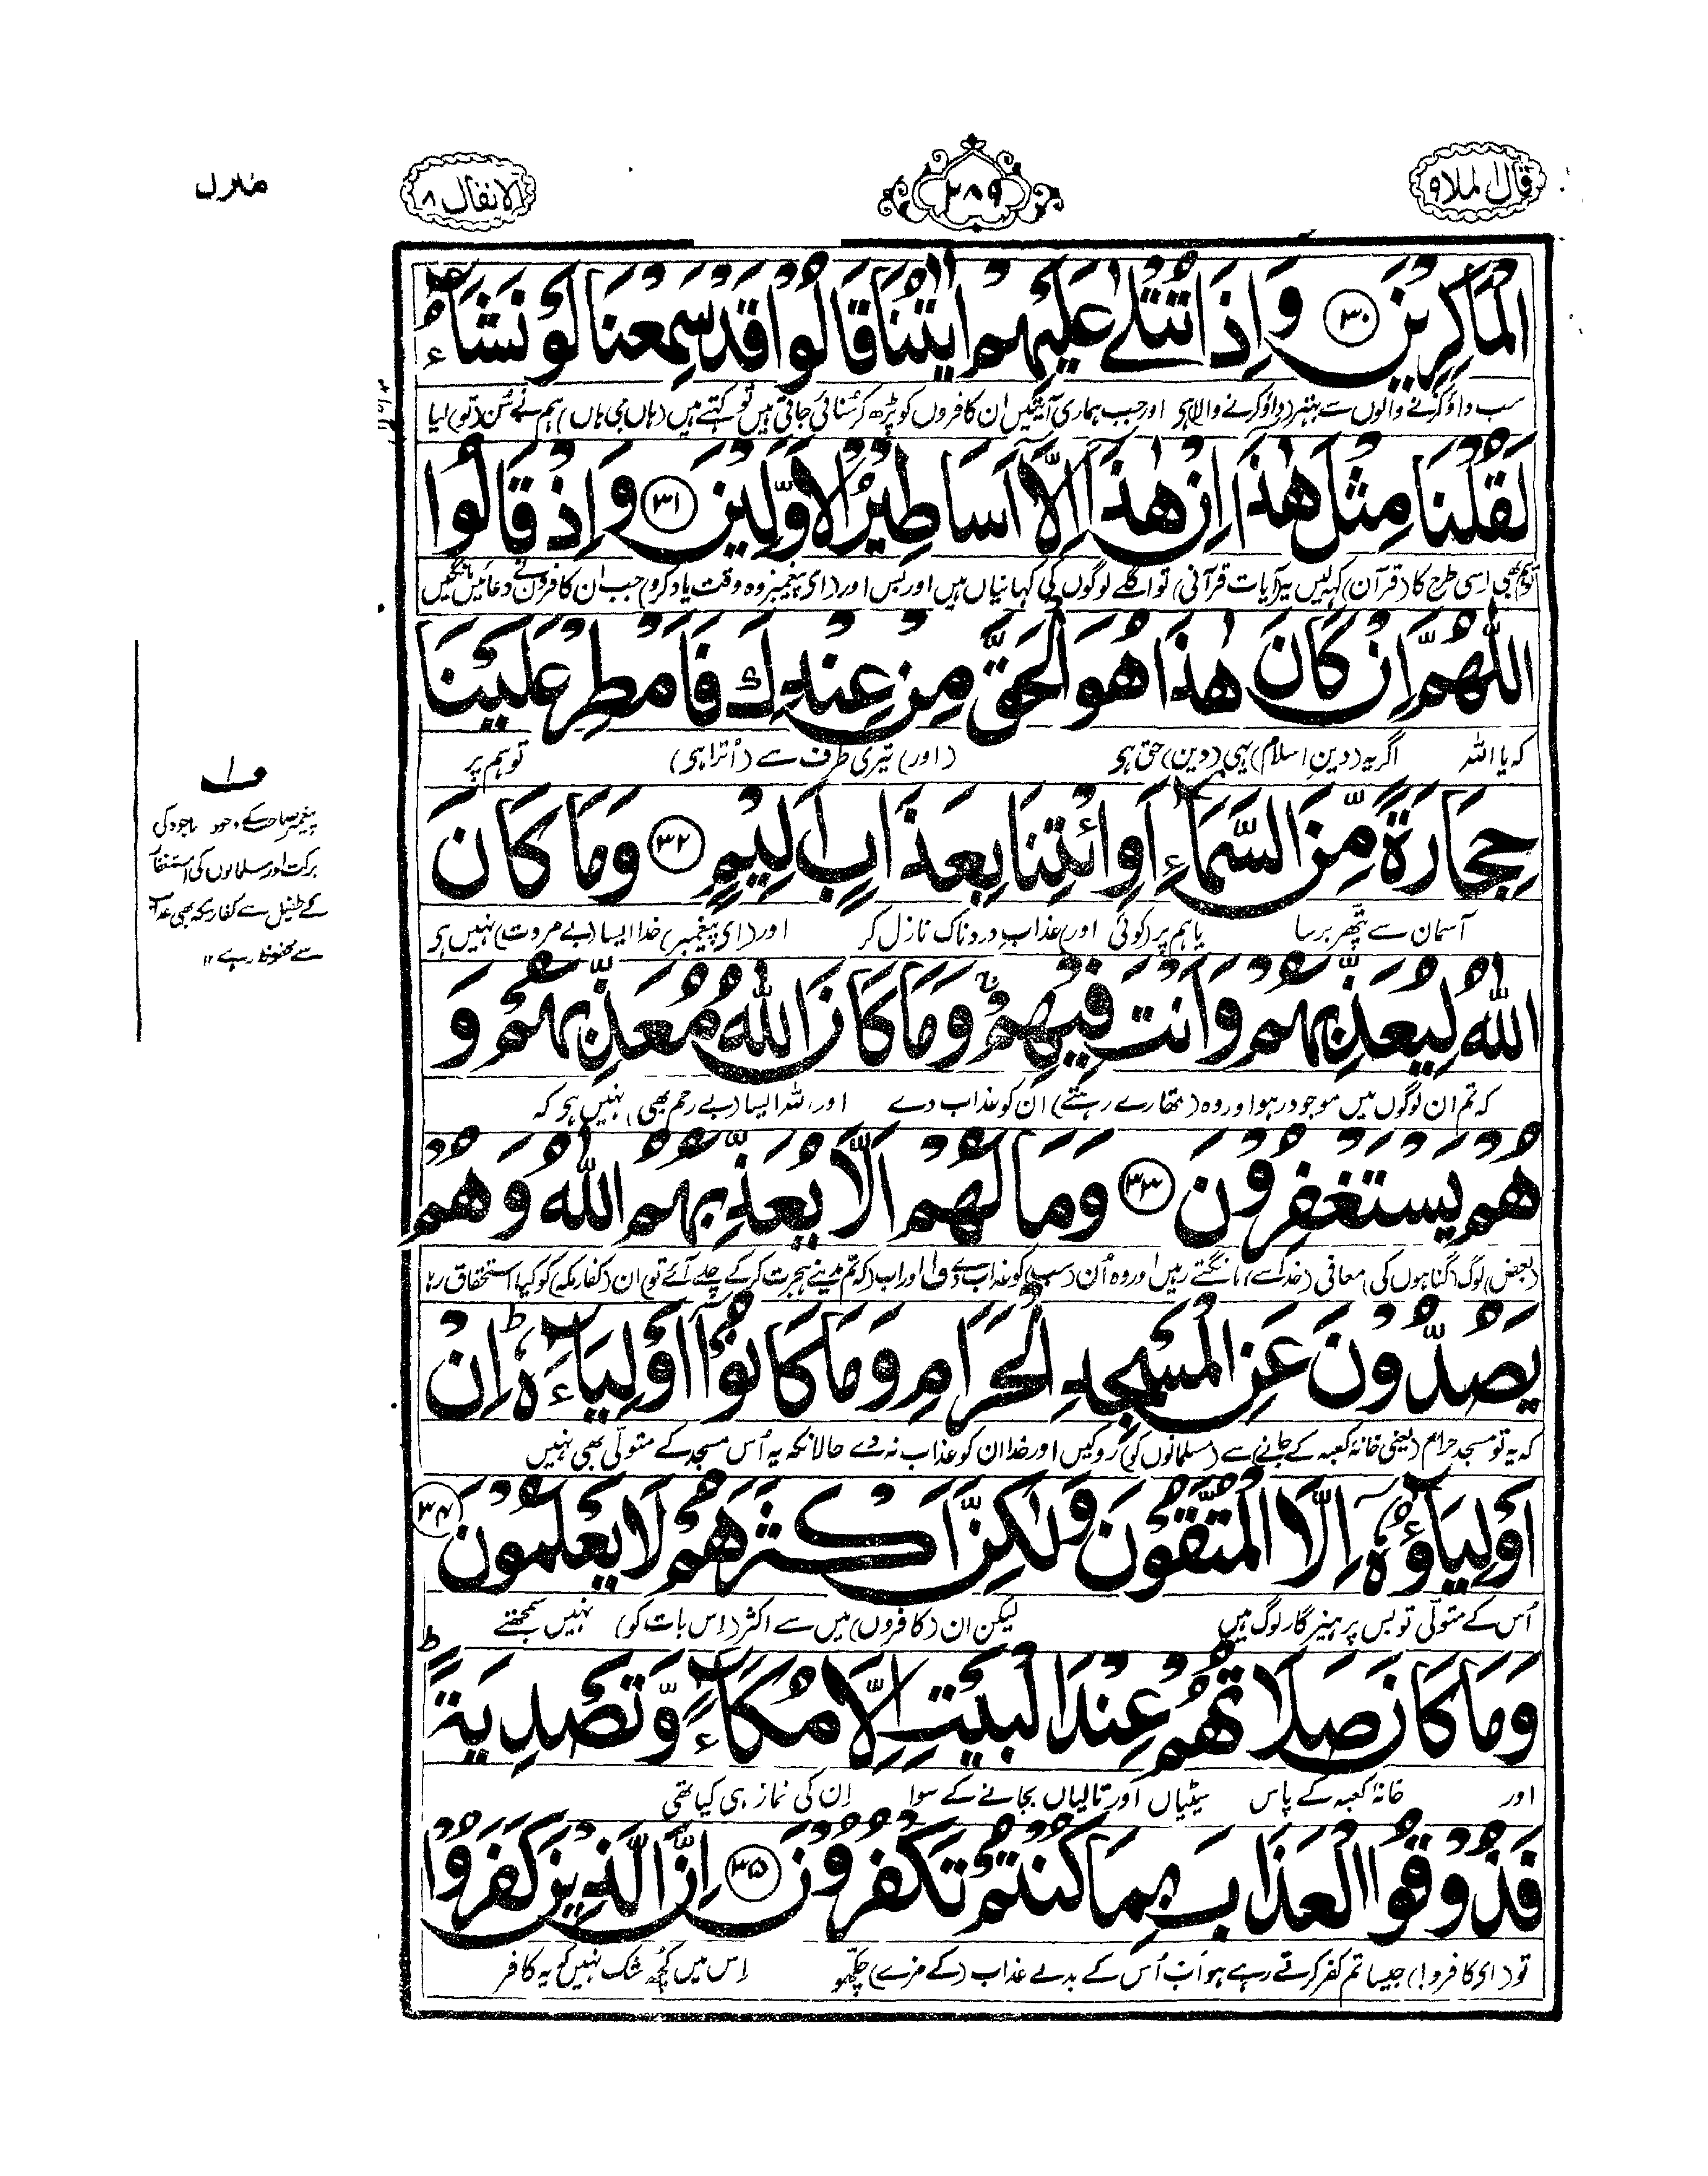 قال الملا ۹
۲۸۹
الانفال ۸
منزل
الْمَاكِرِيْنَ ۳۰ وَاِذَا تُتْلٰى عَلَيْهِمْ اٰيٰتُنَا قَالُوْا قَدْ سَمِعْنَا لَوْ نَشَآءُ
سب داؤ کرنے والوں سے بہتر داؤ کرنے والا ہی اور جب ہماری آیتیں ان کافروں کو پڑھ کر سُنائی جاتی ہیں تو کہتے ہیں (ہاں جی ہاں) ہم نے سُن (تو) لیا
لَقُلْنَا مِثْلَ هٰذَا اِنْ هٰذَآ اِلَّآ اَسَاطِيْرُ الْاَوَّلِيْنَ ۳۱ وَاِذْ قَالُوا
بھی اسی طرح کا (قرآن) کہہ لیں یہ (آیات قرآنی) تو اگلے لوگوں کی کہانیاں ہیں اور بس اور (ای پیغمبر وہ وقت یاد کرو) جب ان کافروں نے دعائیں مانگیں
اللّٰهُمَّ اِنْ كَانَ هٰذَا هُوَ الْحَقَّ مِنْ عِنْدِكَ فَاَمْطِرْ عَلَيْنَا
کہ یا اللہ اگر یہ (دین اسلام) یہی (دین) حق ہی (اور) تیری طرف سے (اُترا ہی) تو ہم پر
حِجَارَةً مِّنَ السَّمَآءِ اَوِ ائْتِنَا بِعَذَابٍ اَلِيْمٍ ۳۲ وَمَا كَانَ
آسمان سے پتھر برسا یا ہم پر (کوئی اور) عذاب دردناک نازل کر اور (ای پیغمبر) خدا ایسا (بے مروت) نہیں ہی
اللّٰهُ لِيُعَذِّبَهُمْ وَاَنْتَ فِيْهِمْ وَمَا كَانَ اللّٰهُ مُعَذِّبَهُمْ وَ
کہ تم ان لوگوں میں موجود رہو اور وہ (تمھارے رہتے) ان کو عذاب دے اور اللہ ایسا (بے رحم بھی) نہیں ہی کہ
هُمْ يَسْتَغْفِرُوْنَ ۳۳ وَمَا لَهُمْ اَلَّا يُعَذِّبَهُمُ اللّٰهُ وَهُمْ
(بعض) لوگ (گناہوں کی) معافی (خدا سے) مانگتے رہیں اور وہ اُن (سب) کو عذاب دے ف۱ اور اب (کہ تم مدینے ہجرت کر کے چلے آئے تو) ان (کفار مکہ) کو کیا استحقاق رہا
يَصُدُّوْنَ عَنِ الْمَسْجِدِ الْحَرَامِ وَمَا كَانُوْٓا اَوْلِيَآءَهٗ ط اِنْ
کہ یہ تو مسجد حرام (یعنی خانۂ کعبہ کے جانے) سے (مسلمانوں کو) روکیں اور خدا ان کو عذاب نہ دے حالانکہ یہ اُس مسجد کے متولی بھی نہیں
اَوْلِيَآؤُهٗٓ اِلَّا الْمُتَّقُوْنَ وَلٰكِنَّ اَكْثَرَهُمْ لَا يَعْلَمُوْنَ ۳۴
اُس کے متولّی تو بس پرہیزگار لوگ ہیں لیکن ان (کافروں) میں سے اکثر (اس بات کو) نہیں سمجھتے
وَمَا كَانَ صَلَاتُهُمْ عِنْدَ الْبَيْتِ اِلَّا مُكَآءً وَّتَصْدِيَةً ط
اور خانۂ کعبہ کے پاس سیٹیاں اور تالیاں بجانے کے سوا ان کی نماز ہی کیا تھی
فَذُوْقُوا الْعَذَابَ بِمَا كُنْتُمْ تَكْفُرُوْنَ ۳۵ اِنَّ الَّذِيْنَ كَفَرُوْا
تو (ای کافرو!) جیسا تم کفر کرتے رہے ہو اب اُس کے بدلے عذاب (کے مزے) چکھو اس میں کچھ شک نہیں کہ یہ کافر
ف۱
پیغمبر صاحب کے وجود باجود کی
برکت اور مسلمانوں کی استغفار
کے طفیل سے کفار مکہ بھی عذاب
سے محفوظ رہے ۱۲